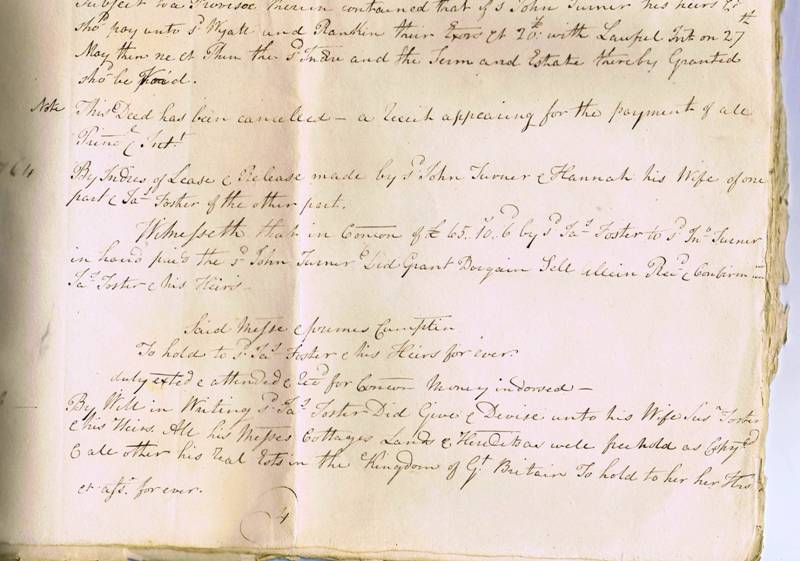 Subject to a Proviso therein contained that if sd John Turner his heirs &c
sho'd pay unto sd Wyatt and Rankin their Exors &c 20£ with Lawful Int on 27th
May then next Then the sd Indre and the Term and Estate thereby Granted
sho'd be Void.
Note This Deed has been cancelled – a Receit appearing for the payment of all
Princl & Intt
764
By Indres of Lease & Release made by sd John Turner & Hannah his Wife of one
part & Jas Foster of the other part.
Witnesseth that in Concon of £65..10..6 by sd Jas Foster to sd Jno Turner
in hand paid the sd John Turner Did Grant Bargain Sell Alien Rese & Confirm
Jas Foster & his Heirs
Said Messe & premes
To hold to sd Jas Foster & his Heirs for ever.
duly exted & attended & Recd for Concon Money indorsed –
By Will in Writing sd Jas Foster Did Give & Devise unto his Wife Susa Foster
& his Heirs All his Messes Cottages Lands & Heredits as well freehold as Copyhd
& all other his Real Ests in the Kingdom of Gt Britain To hold to her her Hrs
& asss for ever.
4